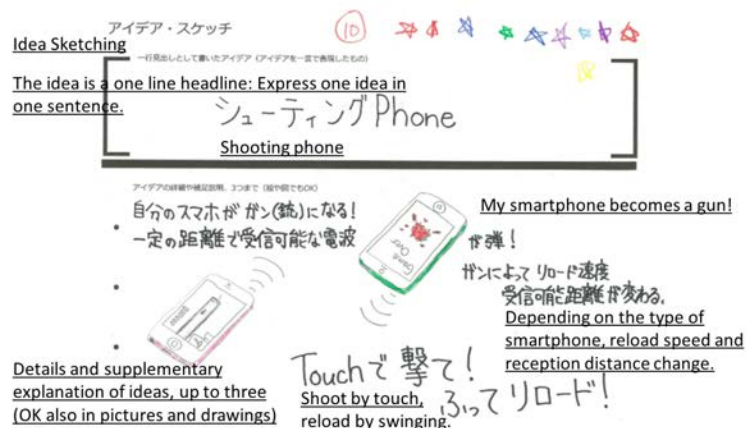 アイデア・スケッチ
10
Idea Sketching
一行見出しとして書いたアイデア (アイデアを一言で表現したもの)
The idea is a one line headline: Express one idea in
one sentence.
シューティングPhone
Shooting phone
アイデアの詳細や補足説明、3つまで (絵や図でもOK)
自分のスマホが ガン(銃)になる!
一定の距離で受信可能な電波
が弾!
Game
Over
My smartphone becomes a gun!
ガンによって リロード速度
受信可能距離が変わる。
Depending on the type of
smartphone, reload speed and
reception distance change.
Details and supplementary
explanation of ideas, up to three
(OK also in pictures and drawings)
Touchで 撃て!
ふって リロード!
Shoot by touch,
reload by swinging.